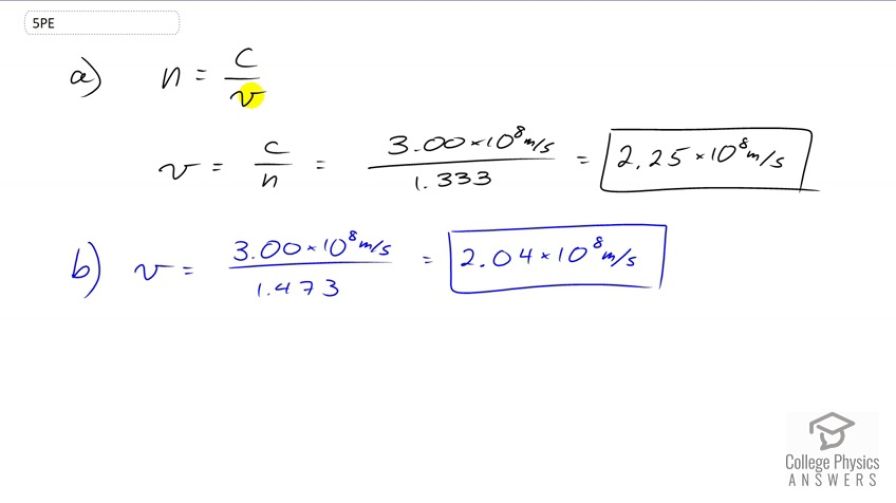 5PE
a) n = c/v
v = c/n = 3.00×10⁸ m/s / 1.333 = 2.25×10⁸ m/s
b) v = 3.00×10⁸ m/s / 1.473 = 2.04×10⁸ m/s
College Physics
ANSWERS